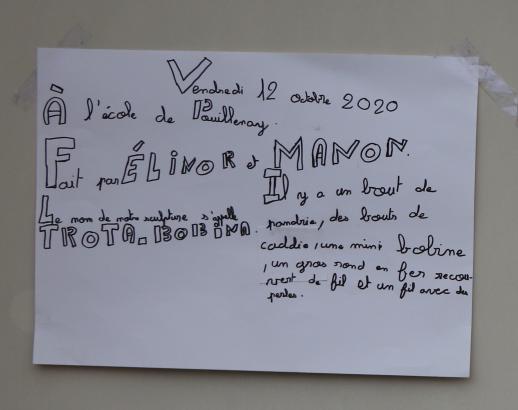 Vendredi 12 octobre 2020
À l'école de Pouillenay.
Fait par ÉLINOR et MANON.
Le nom de notre sculpture s'appelle
TROTA-BOBINA.
Il y a un bout de
pandrie, des bouts de
caddie, une mini bobine
, un gros rond en fer recou-
vert de fil et un fil avec des
perles.